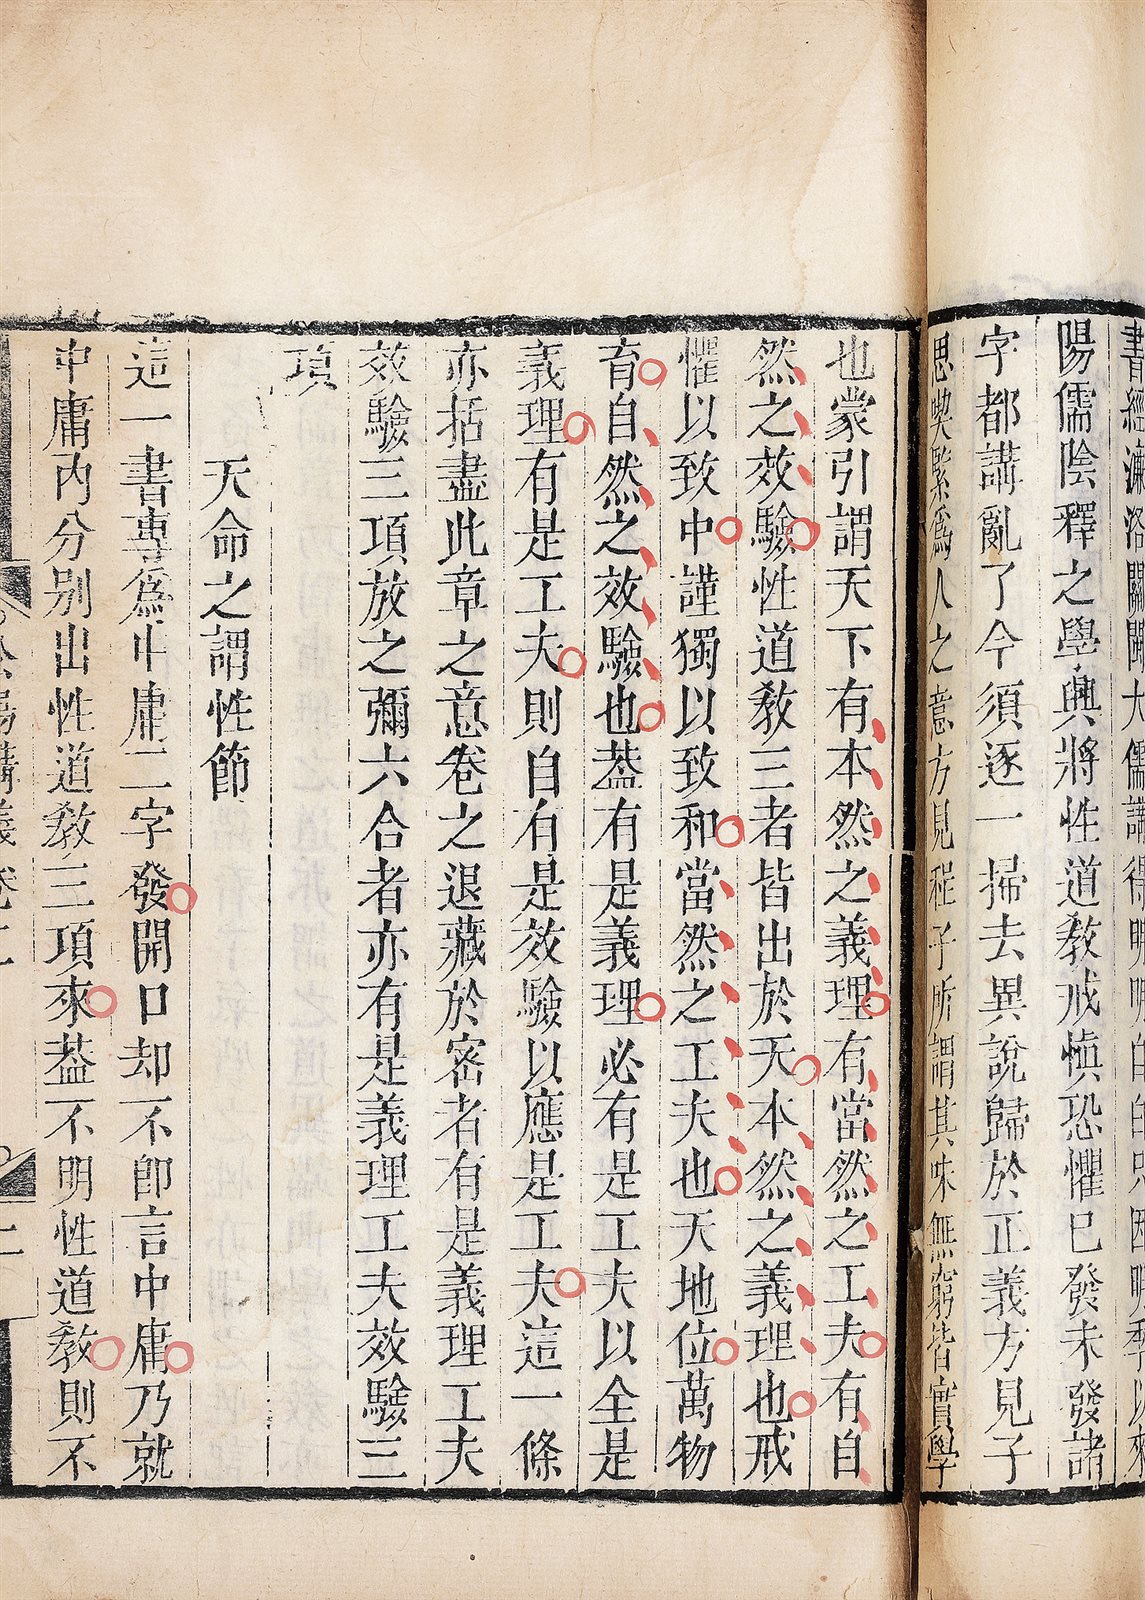 書經濂洛關閩大儒講得明明白白只因明季以來
陽儒陰釋之學興將性道教戒慎恐懼已發未發諸
字都講亂了今須逐一掃去異說歸於正義方見子
思喫緊為人之意方見程子所謂其味無窮皆實學
也蒙引謂天下有本然之義理有當然之工夫有自
然之效驗性道教三者皆出於天本然之義理也戒
懼以致中謹獨以致和當然之工夫也天地位萬物
育自然之效驗也蓋有是義理必有是工夫以全是
義理有是工夫則自有是效驗以應是工夫這一條
亦括盡此章之意卷之退藏於密者有是義理工夫
效驗三項放之彌六合者亦有是義理工夫效驗三
項
天命之謂性節
這一書專為中庸二字發開口却不卽言中庸乃就
中庸內分別出性道教三項來蓋不明性道教則不
講義卷二